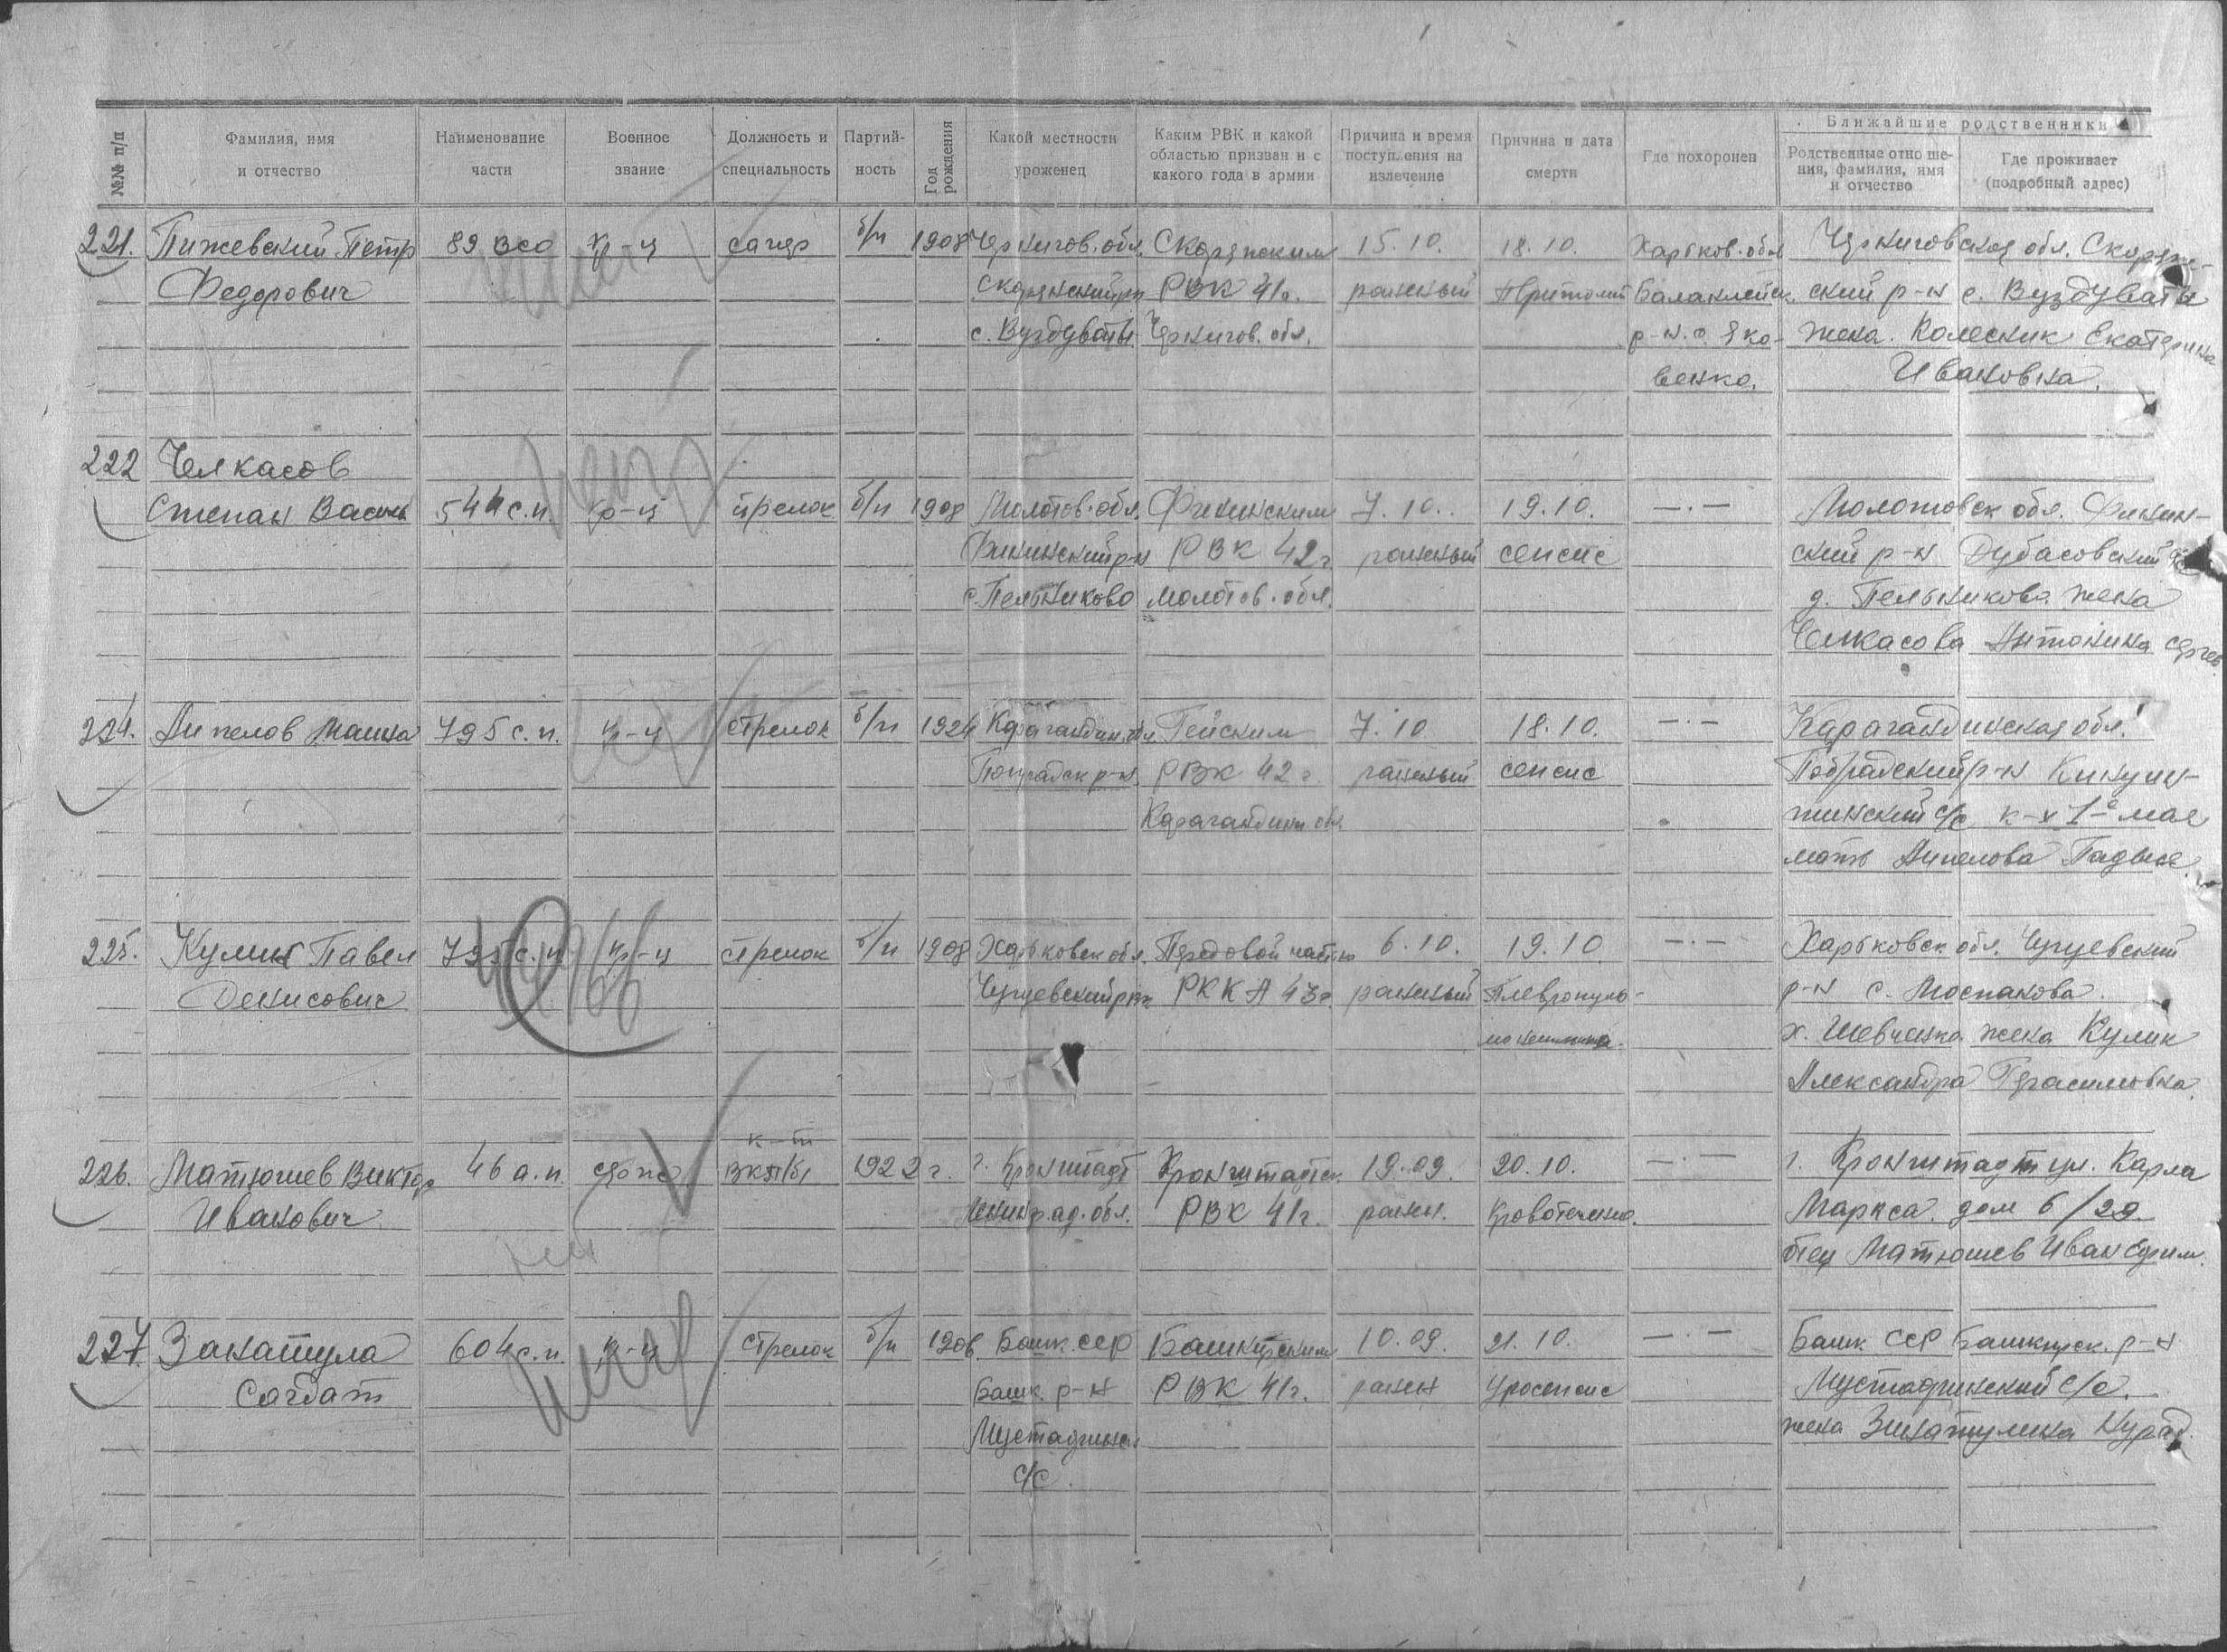 №№ п/п
Фамилия, имя и отчество
Наименование части
Военное звание
Должность и специальность
Партийность
Год рождения
Какой местности уроженец
Каким РВК и какой областью призван и с какого года в армии
Причина и время поступления на излечение
Причина и дата смерти
Где похоронен
Ближайшие родственники
Родственные отношения, фамилия, имя и отчество
Где проживает (подробный адрес)
221. Пижевский Петр 89 ВСО кр-ц сапер б/п 1908 Чернигов. обл. 15.10. 18.10. Харьков. обл Черниговская обл.
Федорович РВК 41г. раненый Балаклейск. ский р-н с. Вуздуваты
с. Вуздуваты Чернигов. обл. р-н. с. Яко- жена. Колесник Екатерина
венко. Ивановна.
222 Челкасов
Степан Василь 544 с.п. кр-ц стрелок б/п 1908 Молотов. обл. Фикинским 7.10. 19.10. —·— Молотовск обл. Фикин-
Фикинский р-н РВК 42г. раненый сепсис ский р-н Дубасовский
с. Пельниково Молотов. обл. д. Пельниково жена
Челкасова Антонина Сергев.
224. 795 с.п. кр-ц стрелок б/п 1924 Карагандин. обл. 7.10 18.10. —·— Карагандинская обл.
РВК 42г. раненый сепсис
Карагандин. обл. с/с к-х 1е мая
мать
225. Кулик Павел 795 с.п. кр-ц стрелок б/п 1908 Харьковск обл. Передовой частью 6.10. 19.10. —·— Харьковск обл. Чугуевский
Денисович Чугуевский р-н РККА 43г. раненый Плевропнев- р-н с. Моспанова.
х. Шевченко жена Кулик
Александра Герасимовна.
к-т
226. Матюшев Виктор 46 а.п. ВКП(б) 1922 г. г. Кронштадт Кронштадтск. 19.09. 20.10. —·— г. Кронштадт ул. Карла
Иванович Ленинград. обл. РВК 41г. ранен. Кровотечение. Маркса. дом 6/29.
отец Матюшев Иван Ефим.
227. Занатула 604 с.п. кр-ц стрелок б/п 1906 Башк. ССР Башкирским 10.09. 21.10. —·— Башк ССР Башкирск. р-н
Сагдат Башк. р-н РВК 41г. ранен Уросепсис Мустафинский с/с.
Мустафинск. жена Зинатулина
с/с.